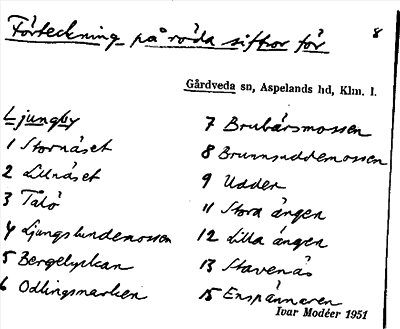 Förteckning på röda siffror för
8
Gårdveda sn, Aspelands hd, Klm. l.
Ljungby
1 Stornäset
2 Lillnäset
3 Talö
4 Ljungslundemossen
5 Bergelyckan
6 Odlingsmarken
7 Brubårsmossen
8 Brunnsuddemossen
9 Udden
11 Stora ängen
12 Lilla ängen
13 Stavenäs
15 Enspännaren
Ivar Modéer 1951